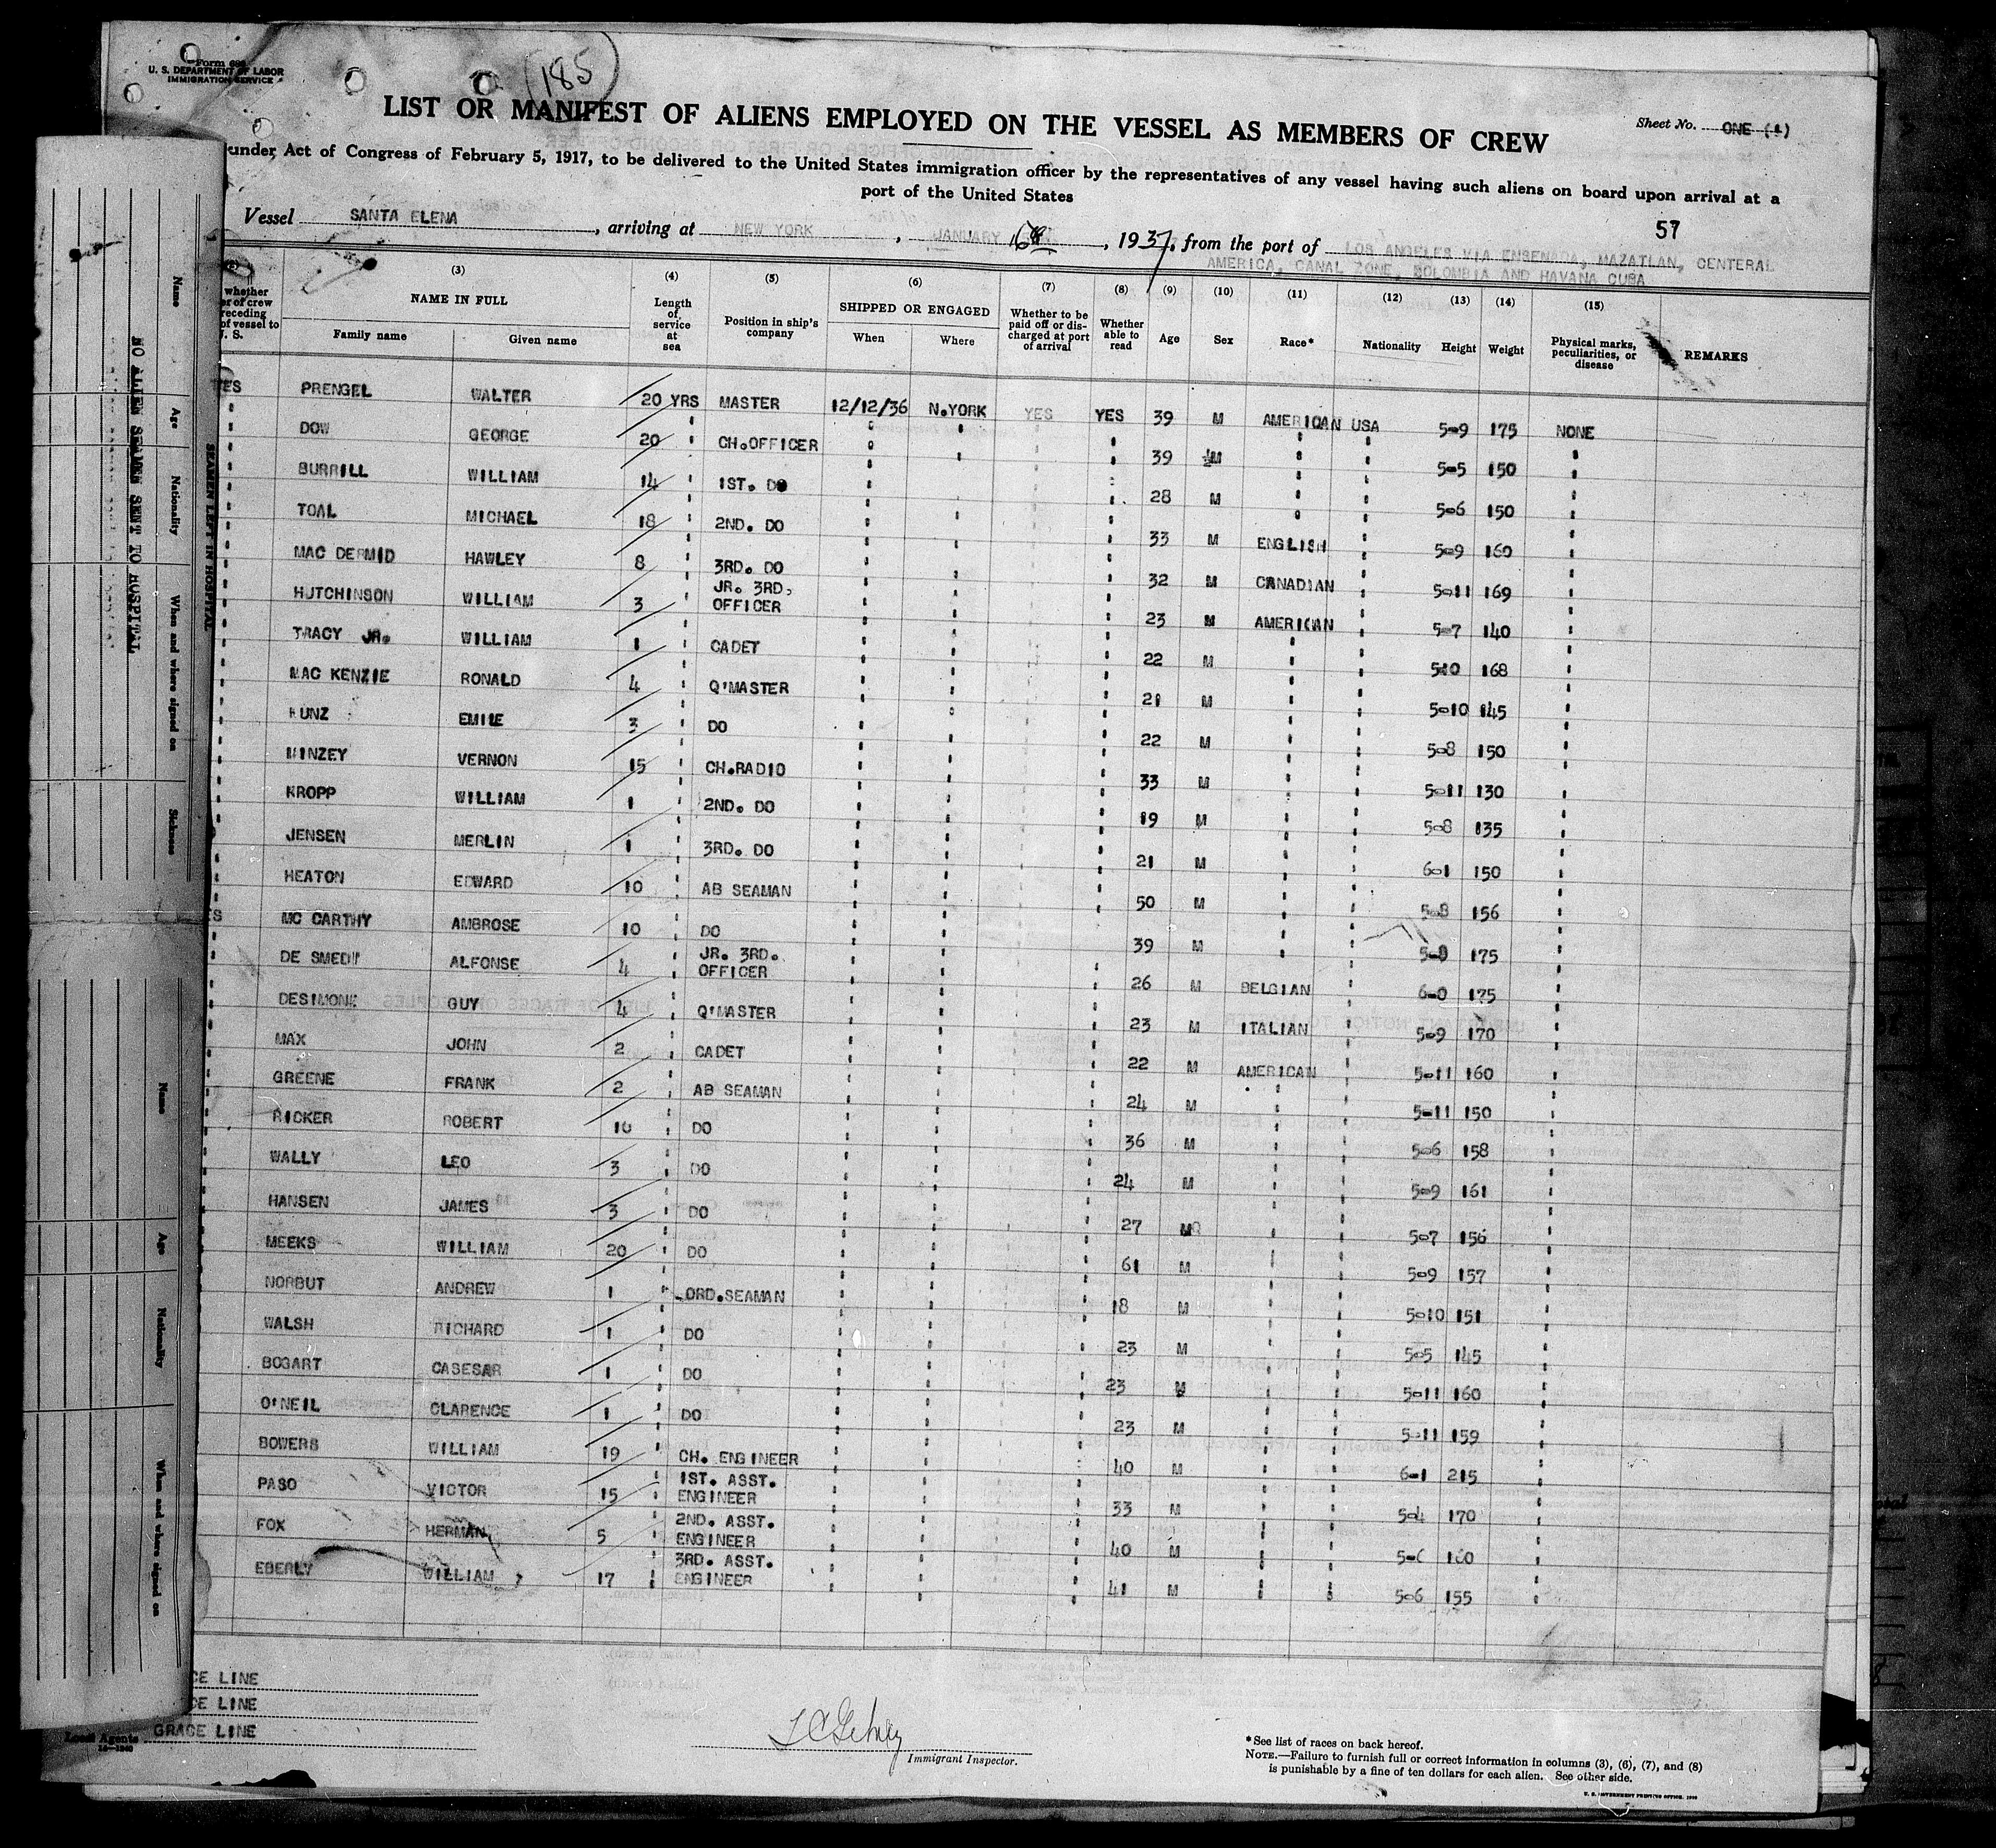 Form 689
U. S. DEPARTMENT OF LABOR
IMMIGRATION SERVICE
185
LIST OR MANIFEST OF ALIENS EMPLOYED ON THE VESSEL AS MEMBERS OF CREW
Sheet No. ONE (1)
under Act of Congress of February 5, 1917, to be delivered to the United States immigration officer by the representatives of any vessel having such aliens on board upon arrival at a
port of the United States
57
Vessel SANTA ELENA, arriving at NEW YORK, JANUARY, 1937, from the port of LOS ANGELES VIA ENSENADA, MAZATLAN, CENTERAL
AMERICA, CANAL ZONE, COLOMBIA AND HAVANA CUBA
whether (3) (4) (5) (6) (7) (8) (9) (10) (11) (12) (13) (14) (15)
er of crew receding of vessel to U. S. NAME IN FULL Family name Given name Length of service at sea Position in ship's company SHIPPED OR ENGAGED When Where Whether to be paid off or discharged at port of arrival Whether able to read Age Sex Race* Nationality Height Weight Physical marks, peculiarities, or disease REMARKS
YES PRENGEL WALTER 20 YRS MASTER 12/12/36 N.YORK YES YES 39 M AMERICAN USA 5-9 175 NONE
" DOW GEORGE 20 " CH.OFFICER " " " " 39 M " " 5-5 150 "
" BURRILL WILLIAM 14 " 1ST. DO " " " " 28 M " " 5-6 150 "
" TOAL MICHAEL 18 " 2ND. DO " " " " 33 M ENGLISH " 5-9 160 "
" MAC DERMID HAWLEY 8 " 3RD. DO " " " " 32 M CANADIAN " 5-11 169 "
" HUTCHINSON WILLIAM 3 " JR. 3RD. OFFICER " " " " 23 M AMERICAN " 5-7 140 "
" TRACY JR. WILLIAM 1 " CADET " " " " 22 M " " 5-10 168 "
" MAC KENZIE RONALD 4 " Q'MASTER " " " " 21 M " " 5-10 145 "
" KUNZ EMILE 3 " DO " " " " 22 M " " 5-8 150 "
" MINZEY VERNON 15 " CH.RADIO " " " " 33 M " " 5-11 130 "
" KROPP WILLIAM 1 " 2ND. DO " " " " 19 M " " 5-8 135 "
" JENSEN MERLIN 1 " 3RD. DO " " " " 21 M " " 6-1 150 "
" HEATON EDWARD 10 " AB SEAMAN " " " " 50 M " " 5-8 156 "
S MC CARTHY AMBROSE 10 " DO " " " " 39 M " " 5-8 175 "
" DE SMEDT ALFONSE 4 " JR. 3RD. OFFICER " " " " 26 M BELGIAN " 6-0 175 "
" DESIMONE GUY 4 " Q'MASTER " " " " 23 M ITALIAN " 5-9 170 "
" MAX JOHN 2 " CADET " " " " 22 M AMERICAN " 5-11 160 "
" GREENE FRANK 2 " AB SEAMAN " " " " 24 M " " 5-11 150 "
" RICKER ROBERT 10 " DO " " " " 36 M " " 5-6 158 "
" WALLY LEO 3 " DO " " " " 24 M " " 5-9 161 "
" HANSEN JAMES 3 " DO " " " " 27 M " " 5-7 156 "
" MEEKS WILLIAM 20 " DO " " " " 61 M " " 5-9 157 "
" NORBUT ANDREW 1 " ORD.SEAMAN " " " " 18 M " " 5-10 151 "
WALSH RICHARD 1 " DO " " " " 23 M " " 5-5 145 "
BOGART CASESAR 1 " DO " " " " 23 M " " 5-11 160 "
O'NEIL CLARENCE 1 " DO " " " " 23 M " " 5-11 159 "
BOWERS WILLIAM 19 " CH. ENGINEER " " " " 40 M " " 6-1 215 "
PASO VICTOR 15 " 1ST. ASST. ENGINEER " " " " 33 M " " 5-4 170 "
FOX HERMAN 5 " 2ND. ASST. ENGINEER " " " " 40 M " " 5-6 160 "
EBERLY WILLIAM 17 " 3RD. ASST. ENGINEER " " " " 41 M " " 5-6 155 "
CE LINE
CE LINE
Local Agents GRACE LINE
Immigrant Inspector.
*See list of races on back hereof.
NOTE.—Failure to furnish full or correct information in columns (3), (6), (7), and (8)
is punishable by a fine of ten dollars for each alien. See other side.
U. S. GOVERNMENT PRINTING OFFICE
SEAMEN LEFT IN HOSPITAL
NO ALIEN SEAMEN SENT TO HOSPITAL
Name Age Nationality When and where signed on Sickness
Name Age Nationality When and where signed on